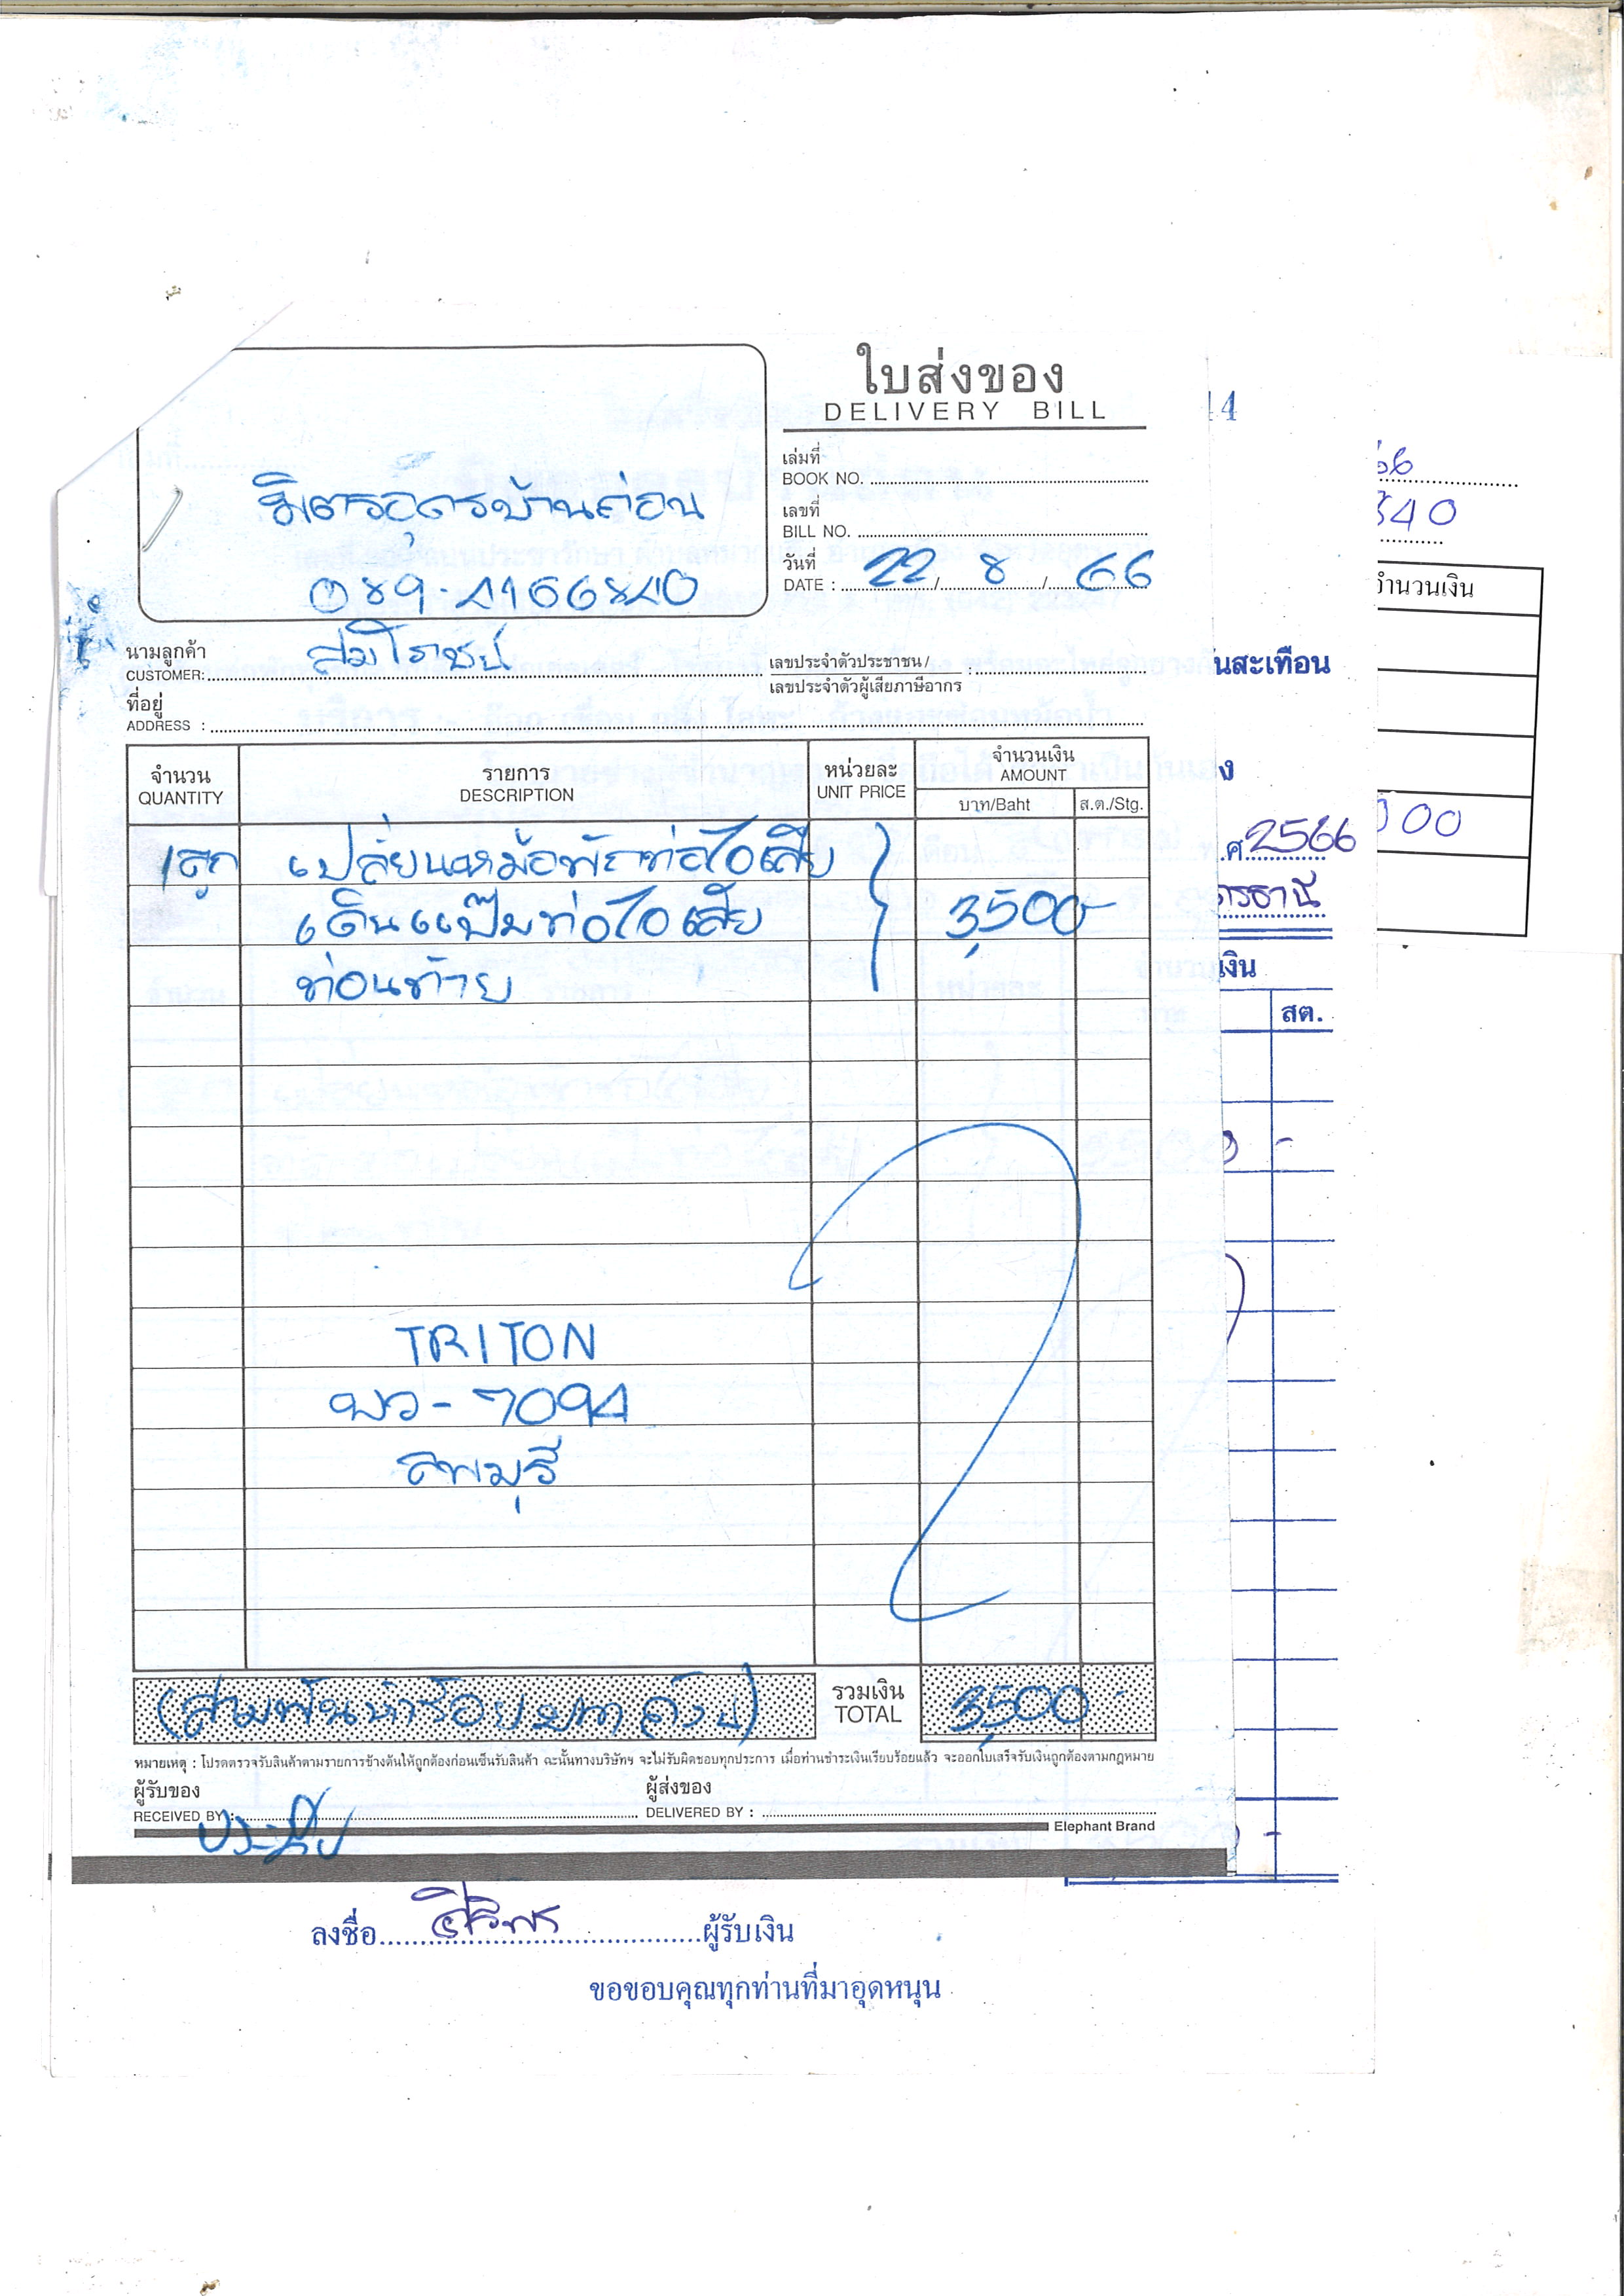 ใบส่งของ
DELIVERY BILL
เล่มที่
BOOK NO.
เลขที่
BILL NO.
วันที่
DATE : 22 / 8 / 66
มิตรอุดรบ้านถ่อน
089-4166840
นามลูกค้า
CUSTOMER: สมโภชน์
เลขประจำตัวประชาชน /
เลขประจำตัวผู้เสียภาษีอากร :
ที่อยู่
ADDRESS :
จำนวน รายการ หน่วยละ จำนวนเงิน
QUANTITY DESCRIPTION UNIT PRICE AMOUNT
บาท/Baht ส.ต./Stg.
1ลูก เปลี่ยนหม้อพักท่อไอเสีย
เดินแป๊บท่อไอเสีย 3,500-
ท่อนท้าย
TRITON
บว-7094
ลพบุรี
(สามพันห้าร้อยบาทถ้วน) รวมเงิน 3,500 -
TOTAL
หมายเหตุ : โปรดตรวจรับสินค้าตามรายการข้างต้นให้ถูกต้องก่อนเซ็นรับสินค้า ฉะนั้นทางบริษัทฯ จะไม่รับผิดชอบทุกประการ เมื่อท่านชำระเงินเรียบร้อยแล้ว จะออกใบเสร็จรับเงินถูกต้องตามกฎหมาย
ผู้รับของ ผู้ส่งของ
RECEIVED BY : DELIVERED BY :
Elephant Brand
ลงชื่อ ผู้รับเงิน
ขอขอบคุณทุกท่านที่มาอุดหนุน
14
66
340
จำนวนเงิน
นสะเทือน
ง
000
.ศ 2566
ดรธานี
เงิน
สต.